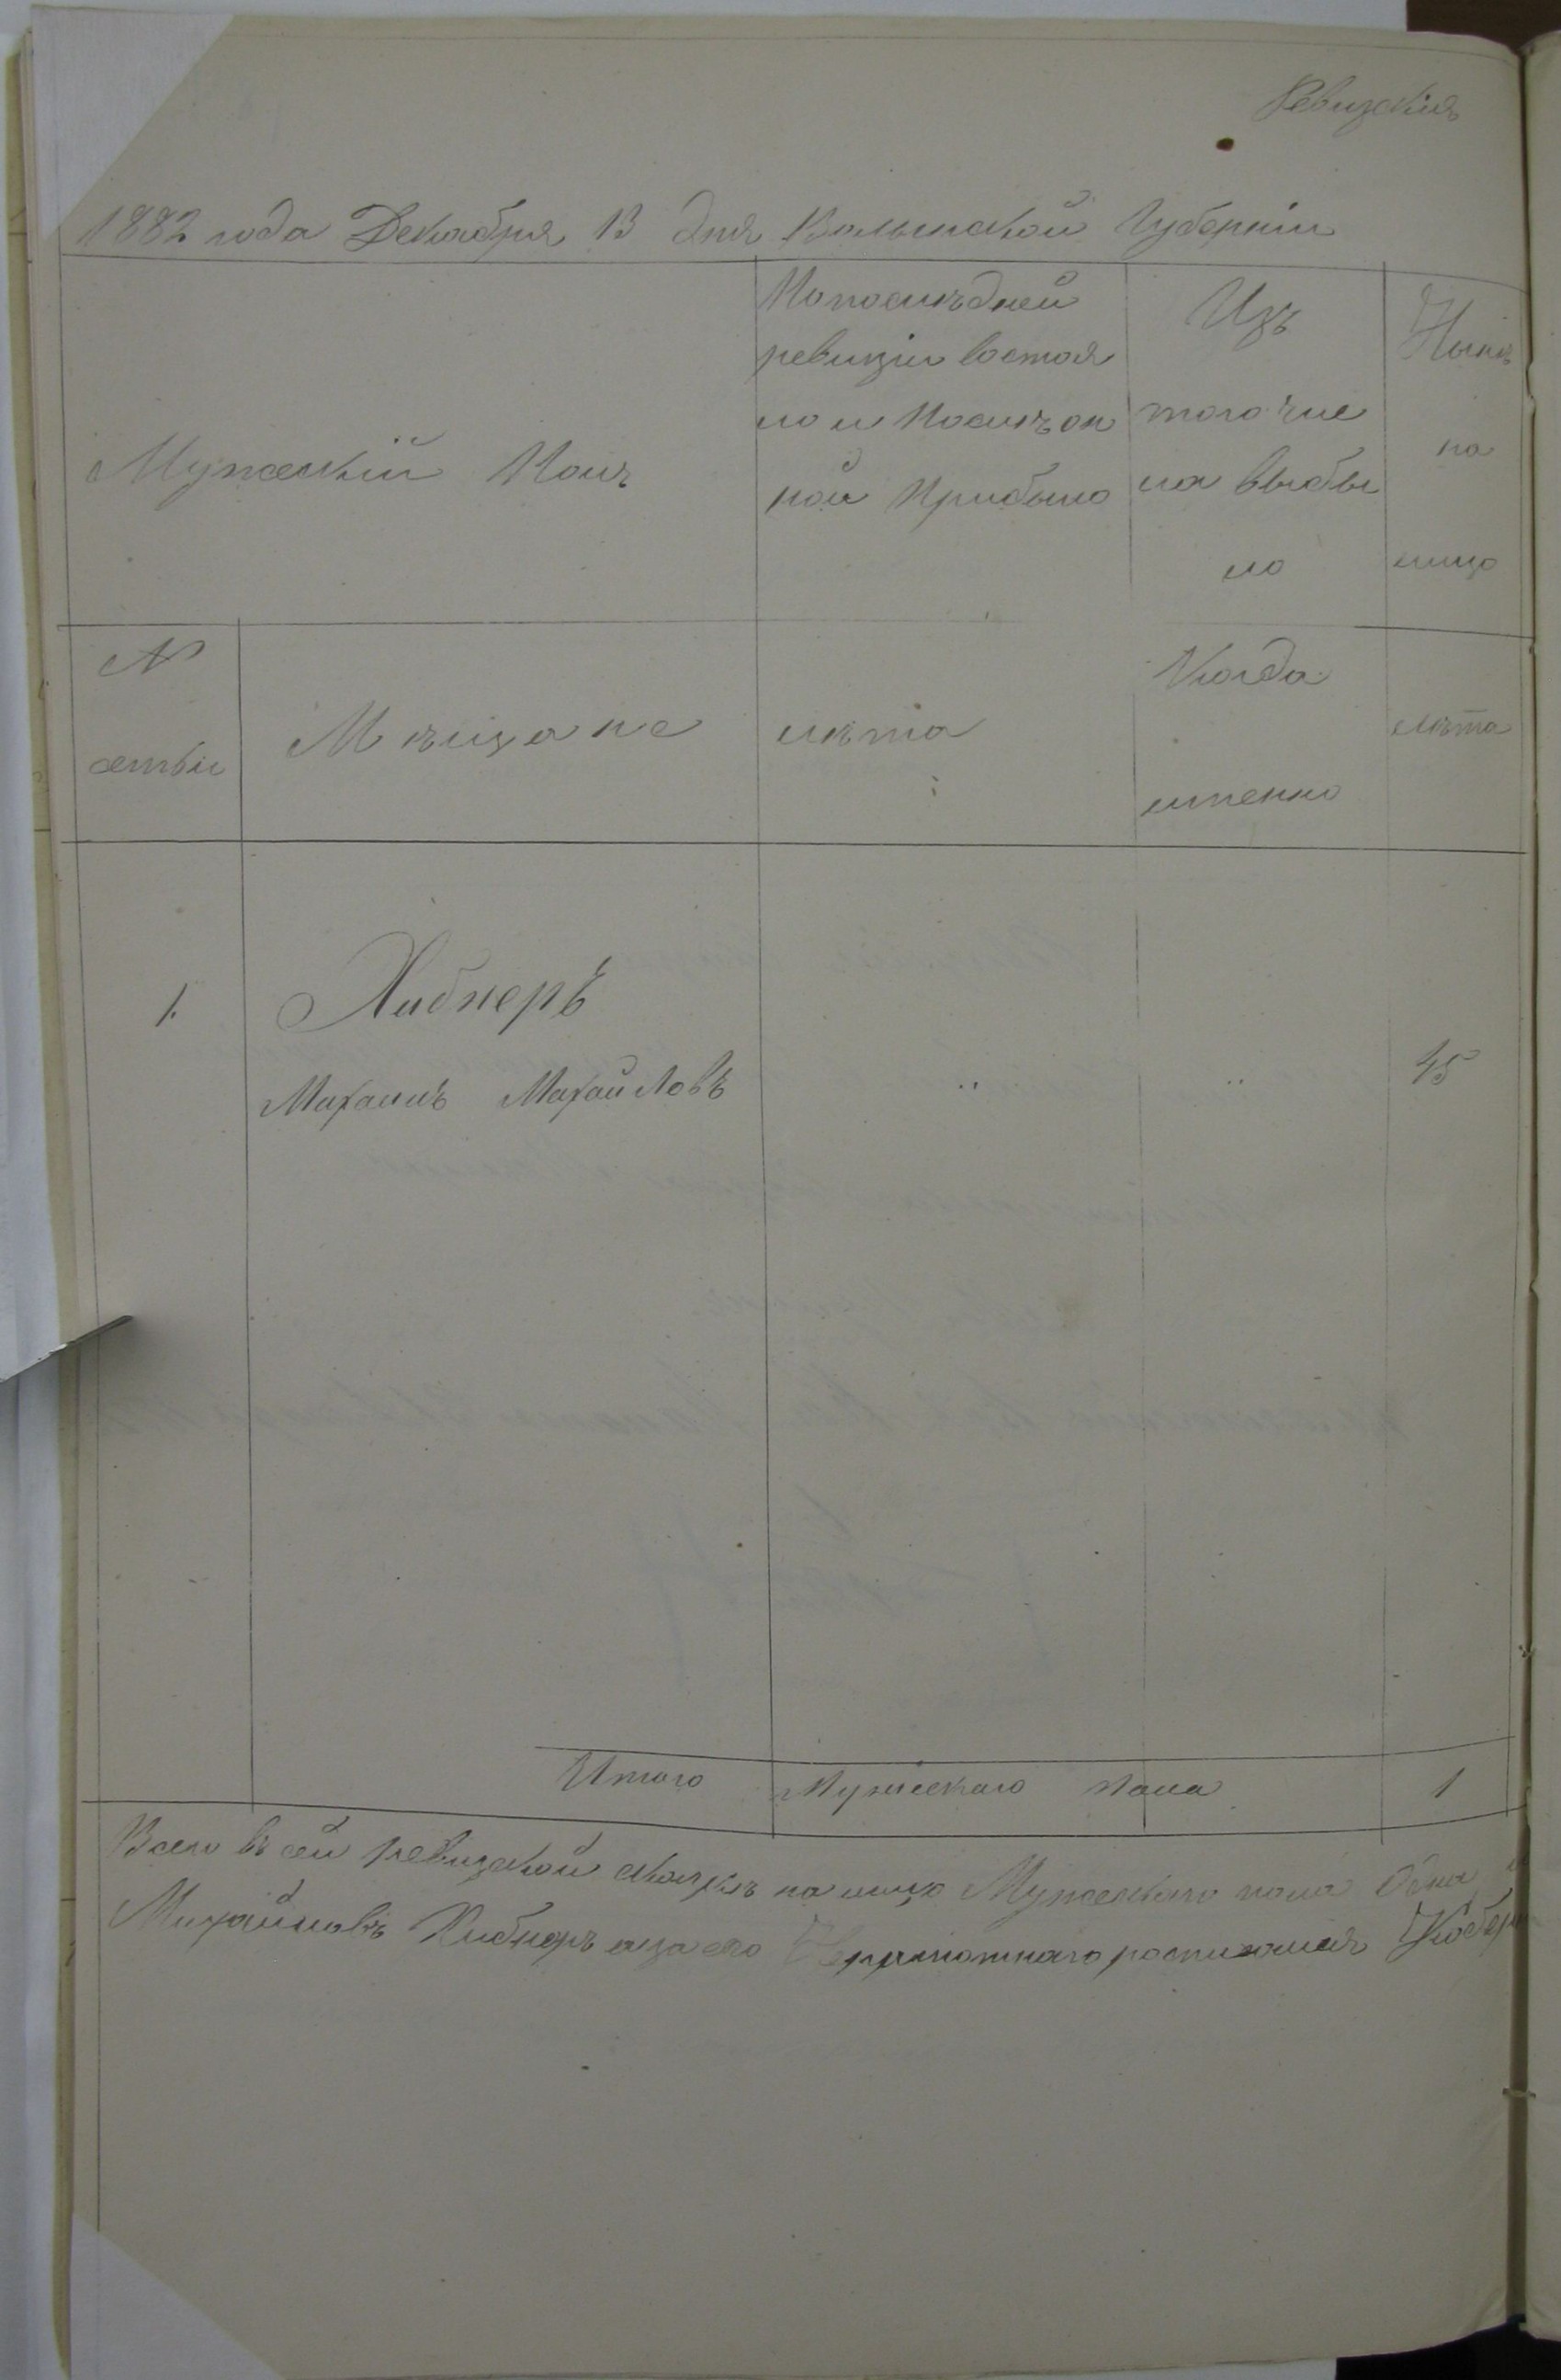 Ревизкія
1882 года Декабря 13 дня Волынской Губерніи
Мужескій Полъ
Попослѣдней
ревизіи состоя
ло и Послѣ он
ной Прибыло
Изъ
того чис
ла выбы
ло
Нынѣ
на
лицо
№
семьи
Мѣщане
лѣта
Когда
именно
лѣта
1.
Хибнеръ
Михаилъ Михайловъ
"
"
45
Итого Мужескаго пола 1
Всего въ сей ревизской сказкѣ на лицо Мужескаго пола Одна
Михайловъ Хибнеръ а за его Неграмотнаго росписался